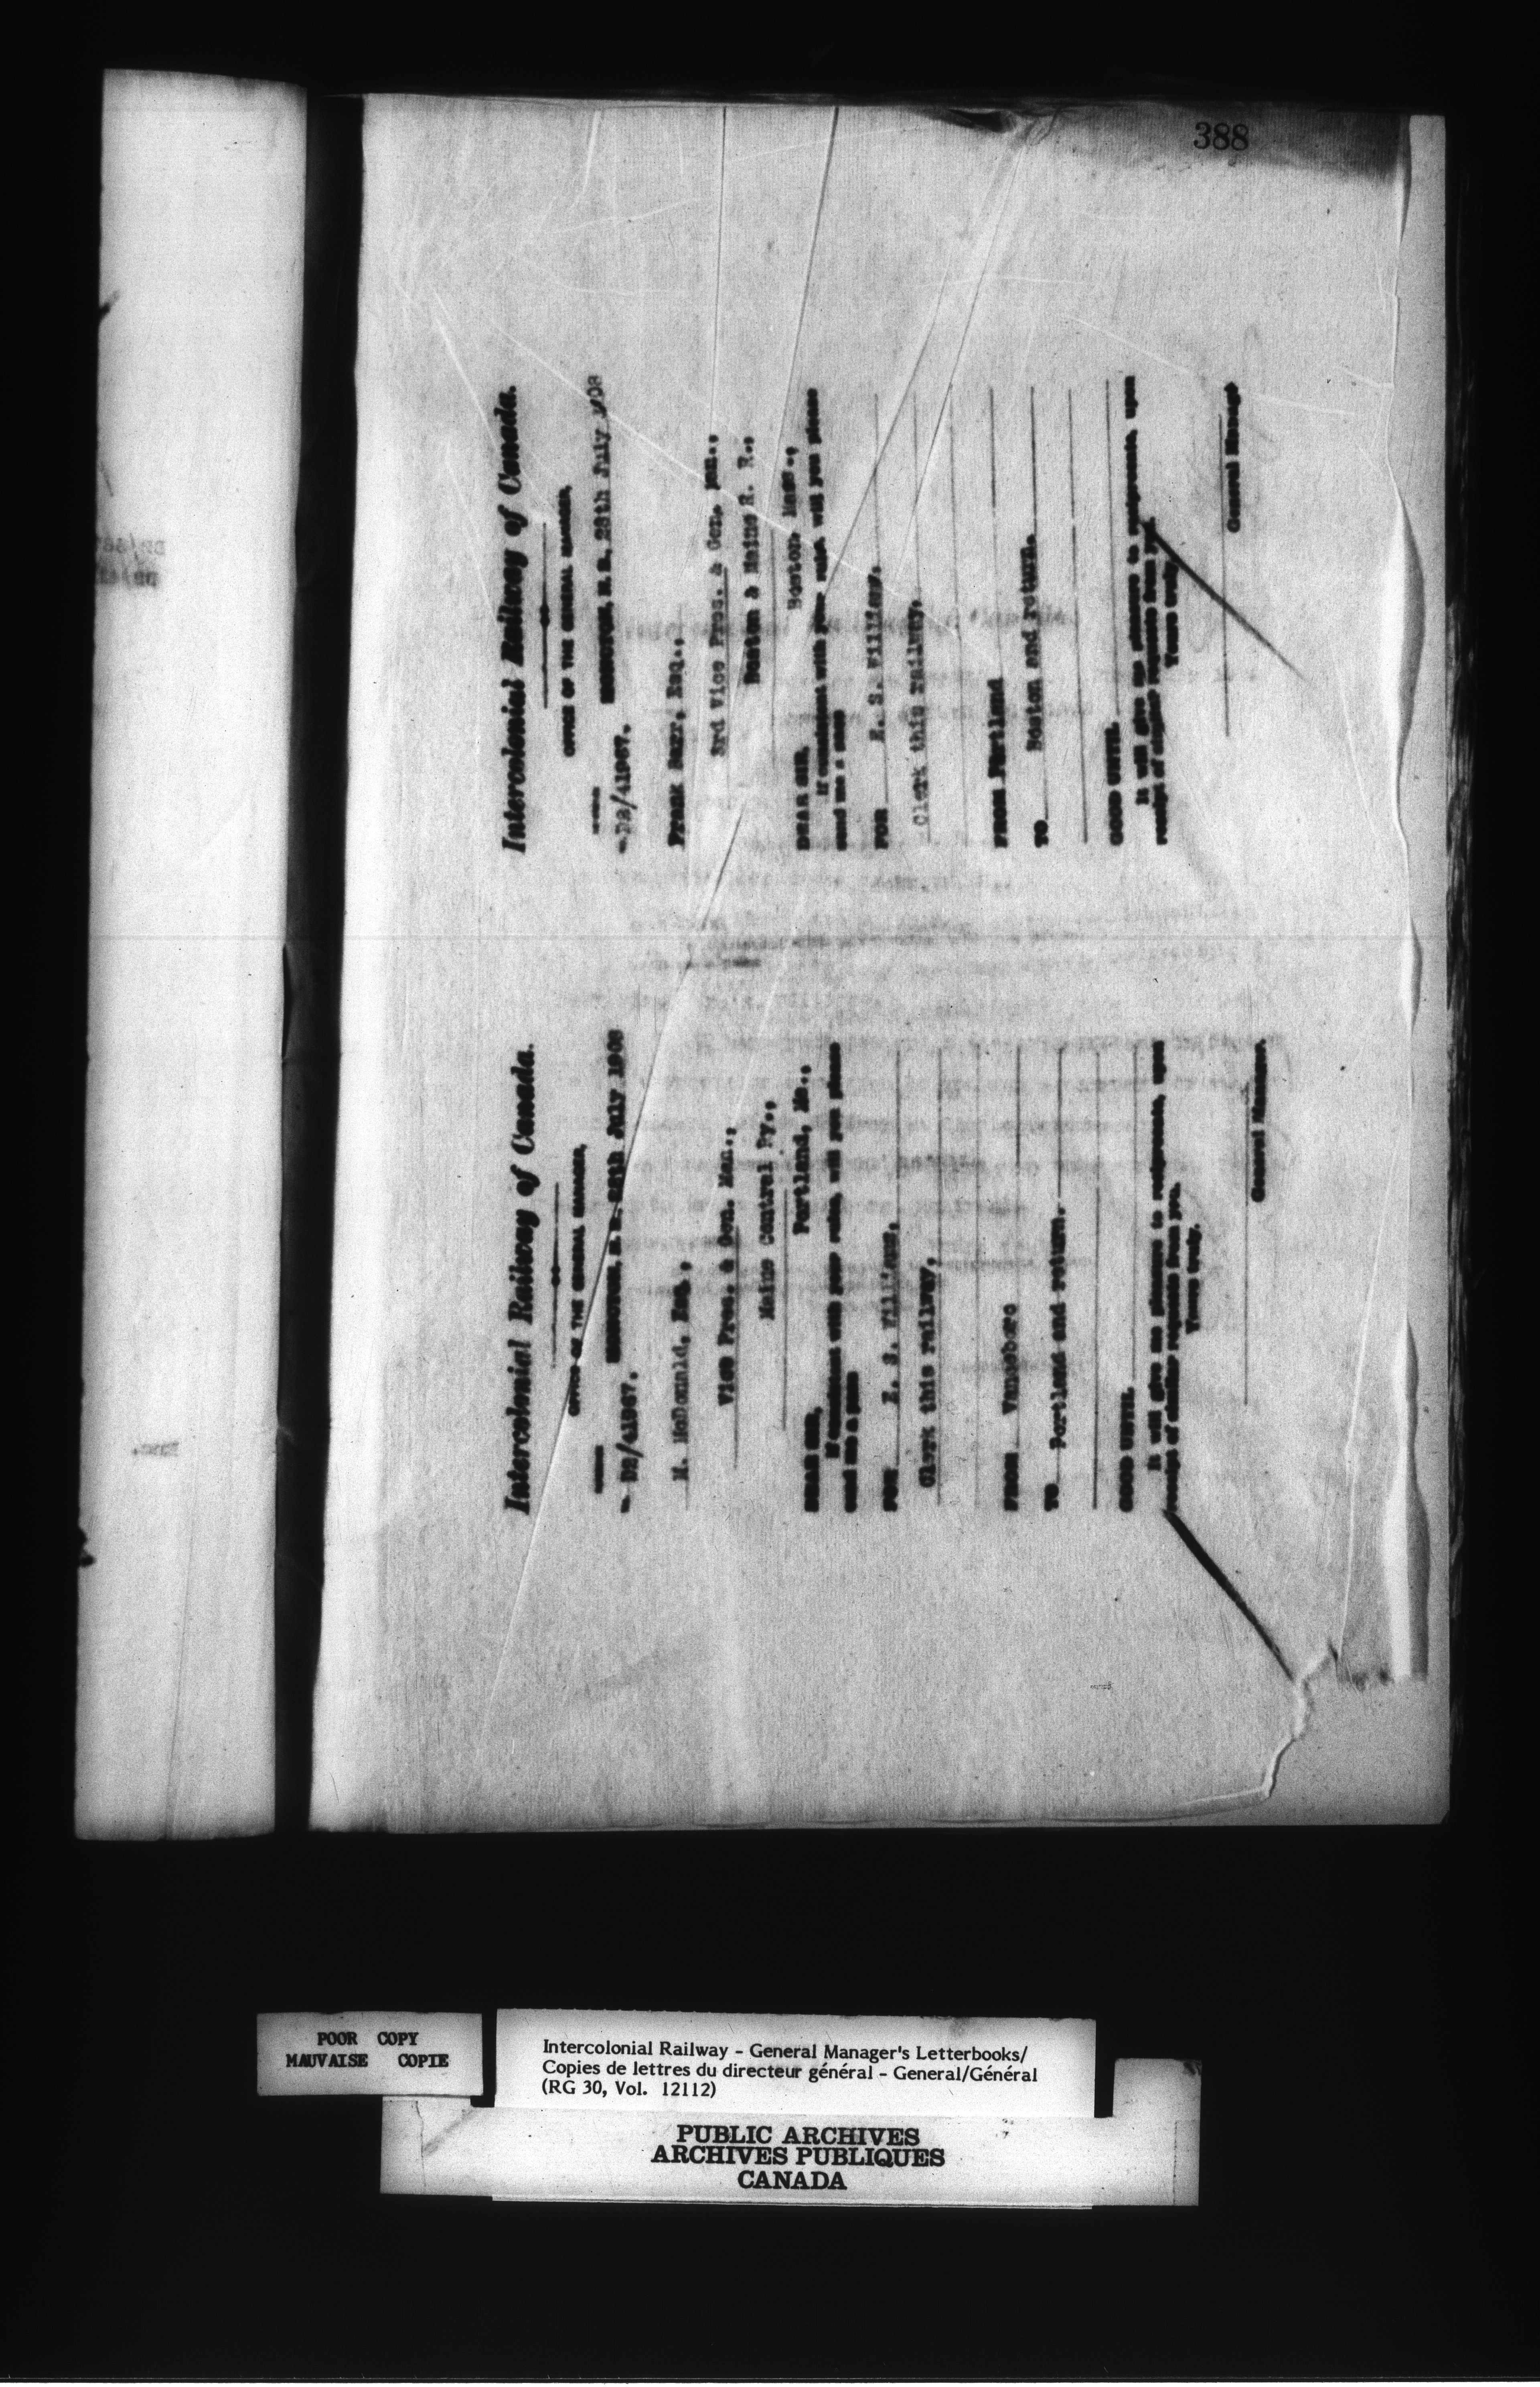 388
Intercolonial Railway of Canada.
OFFICE OF THE GENERAL MANAGER,
MONCTON, N. B. 28th July 1908
DB/41967.
M. McDonald, Esq.,
Vice Pres. & Gen. Man.,
Maine Central Ry.,
Portland, Me.,
DEAR SIR,
If consistent with your rules, will you please
send me a pass
FOR E. S. Williams,
Clerk this railway,
FROM Vanceboro
TO Portland and return.
GOOD UNTIL
It will give me pleasure to reciprocate, upon
receipt of similar requests from you.
Yours truly,
General Manager.
Intercolonial Railway of Canada.
OFFICE OF THE GENERAL MANAGER,
MONCTON, N. B. 28th July 1908
DB/41967.
Frank Barr, Esq.,
3rd Vice Pres. & Gen. Man.,
Boston & Maine R. R.,
Boston, Mass.,
DEAR SIR,
If consistent with your rules, will you please
send me a pass
FOR E. S. Williams,
Clerk this railway,
FROM Portland
TO Boston and return.
GOOD UNTIL
It will give me pleasure to reciprocate, upon
receipt of similar requests from you.
Yours truly,
General Manager
POOR COPY
MAUVAISE COPIE
Intercolonial Railway - General Manager's Letterbooks/
Copies de lettres du directeur général - General/Général
(RG 30, Vol. 12112)
PUBLIC ARCHIVES
ARCHIVES PUBLIQUES
CANADA